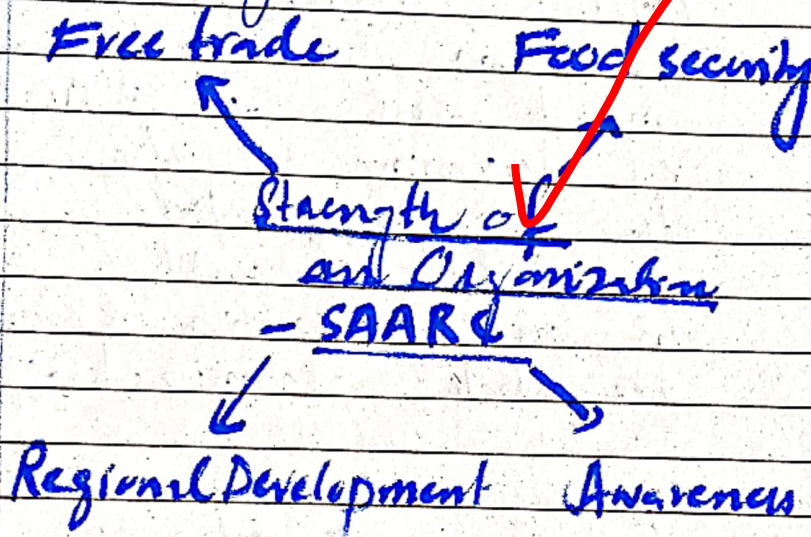 Free trade
Food security
Strength of
an Organization
- SAARC
Regional Development
Awareness